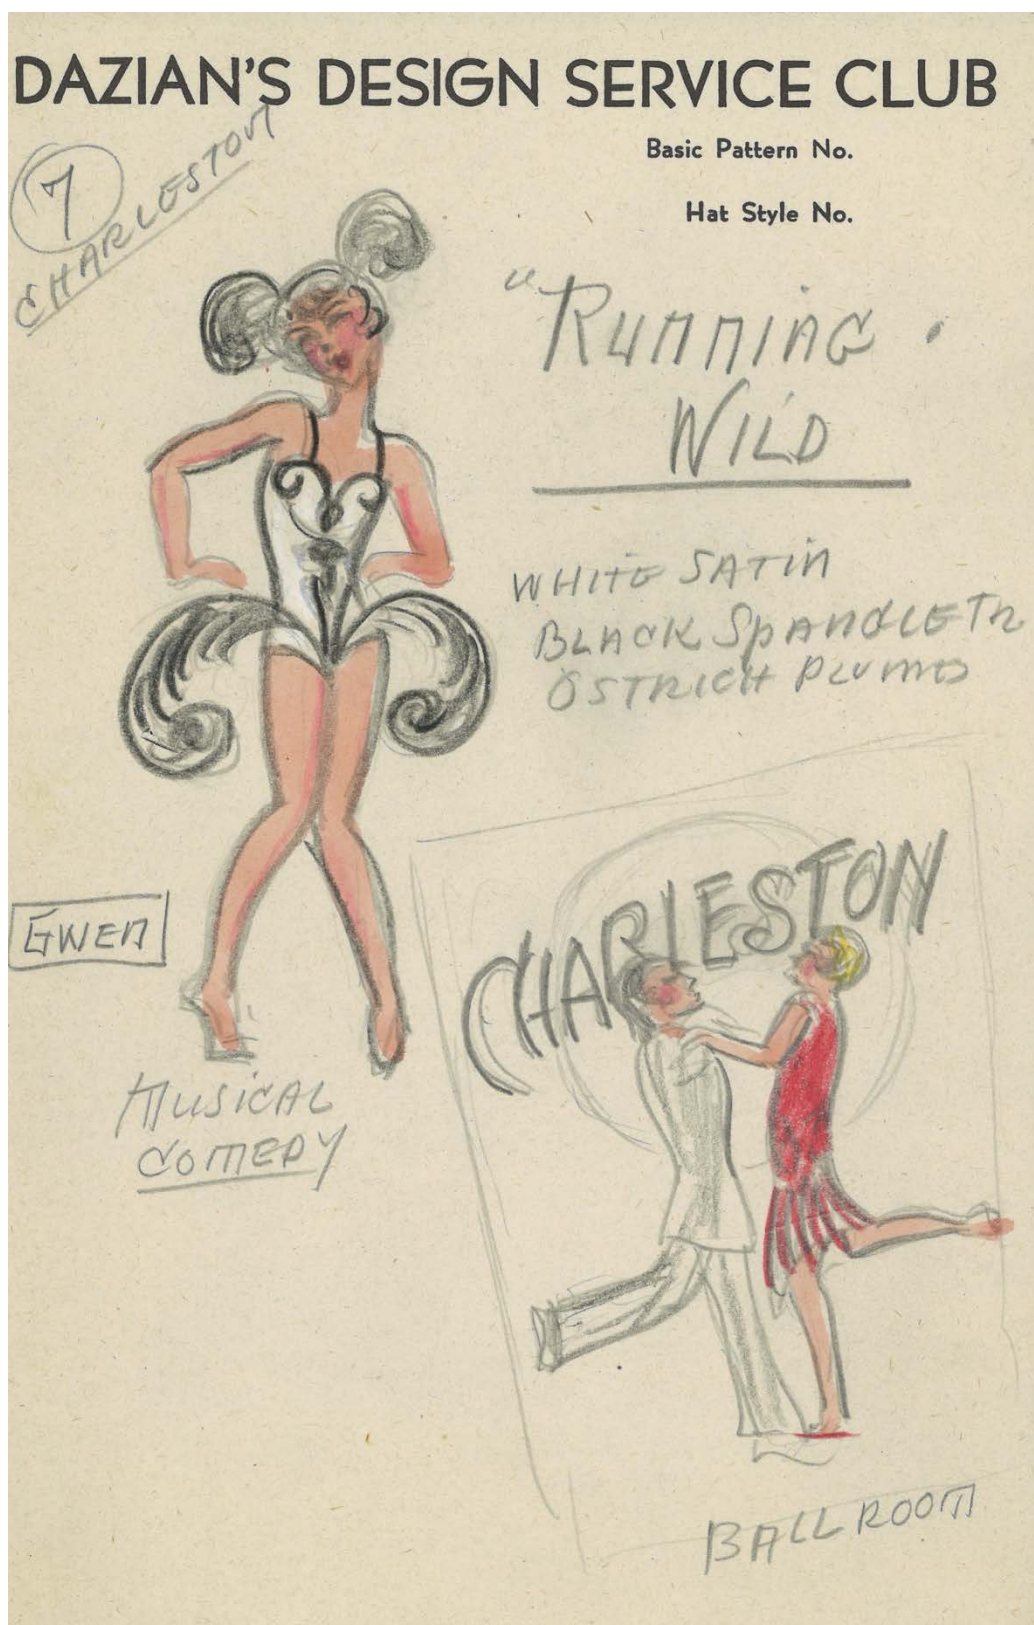 DAZIAN'S DESIGN SERVICE CLUB
Basic Pattern No.
Hat Style No.
7
CHARLESTON
"RUNNING
WILD
WHITE SATIN
BLACK SPANGLE TR
OSTRICH PLUMES
GWEN
MUSICAL
COMEDY
CHARLESTON
BALLROOM